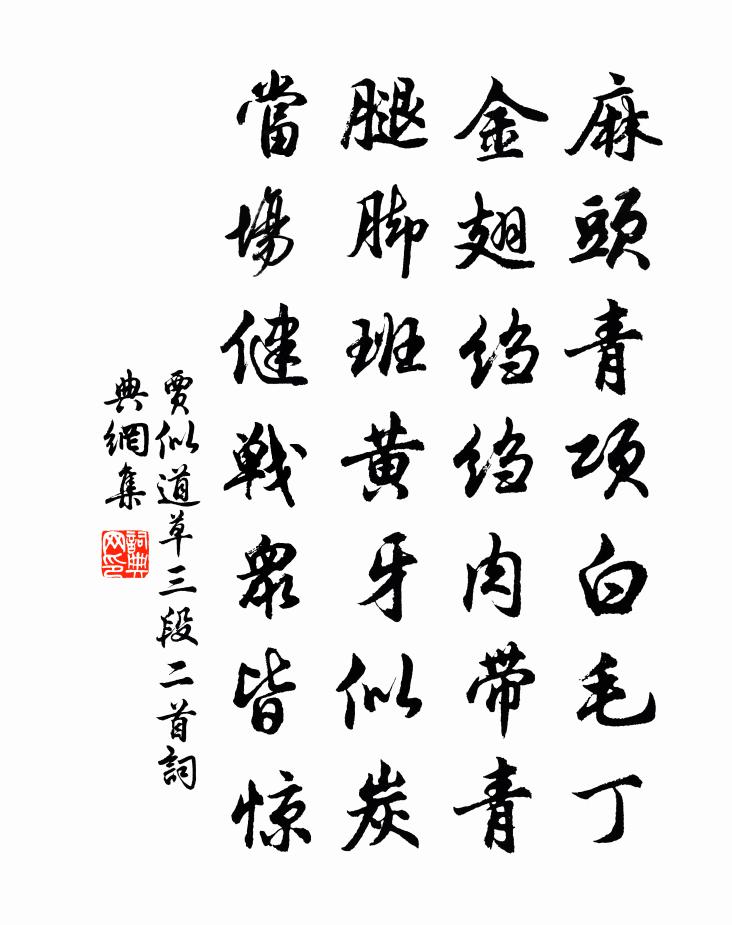 麻頭青項白毛丁
金翅绉绉肉带青
腿脚班黄牙似炭
當場健戦眾皆惊
賈似道草三段二首詞
典網集
詞典
网印